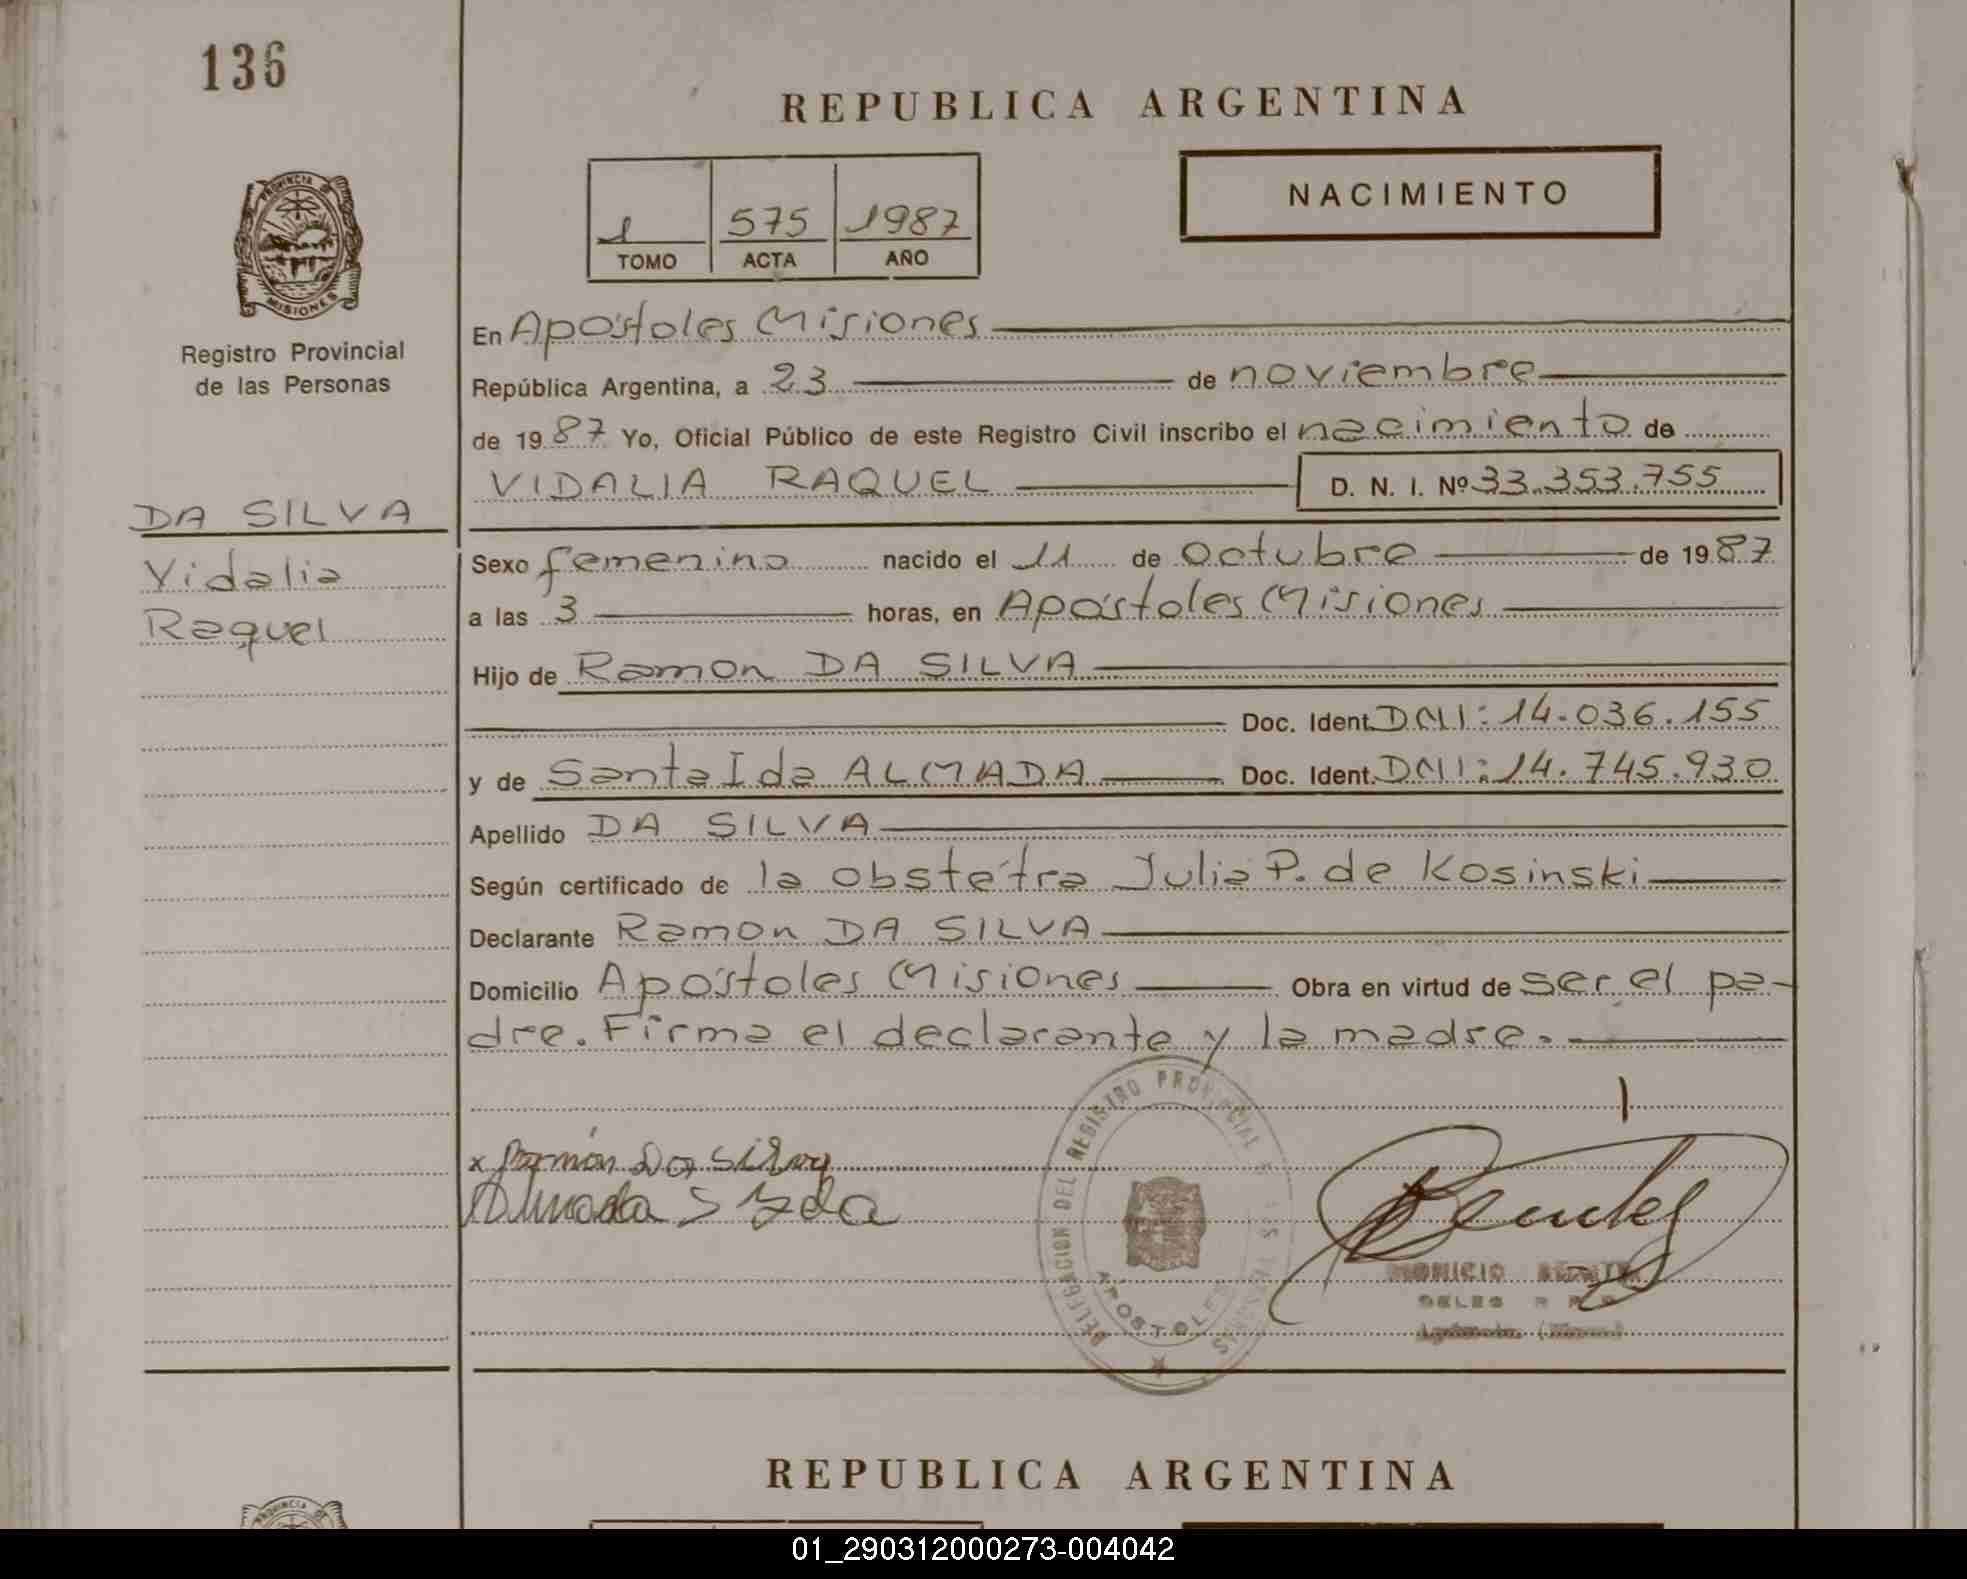 136
REPUBLICA ARGENTINA
NACIMIENTO
1 575 1987
TOMO ACTA AÑO
PROVINCIA DE
MISIONES
Registro Provincial
de las Personas
En Apóstoles Misiones
República Argentina, a 23 de noviembre
de 1987 Yo, Oficial Público de este Registro Civil inscribo el nacimiento de
VIDALIA RAQUEL D. N. I. Nº 33.353.755
DA SILVA
Vidalia
Raquel
Sexo femenino nacido el 11 de octubre de 1987
a las 3 horas, en Apóstoles Misiones
Hijo de Ramon DA SILVA
Doc. Ident. DNI: 14.036.155
y de Santa Ida ALMADA Doc. Ident. DNI: 14.745.930
Apellido DA SILVA
Según certificado de la obstétra Julia P. de Kosinski
Declarante Ramon DA SILVA
Domicilio Apóstoles Misiones Obra en virtud de ser el pa-
dre. Firma el declarante y la madre.
x Ramón Da Silva
Almada S Ida
DELEGACION DEL REGISTRO PROVINCIAL
APOSTOLES
REPUBLICA ARGENTINA
PROVINCIA DE
01_290312000273-004042